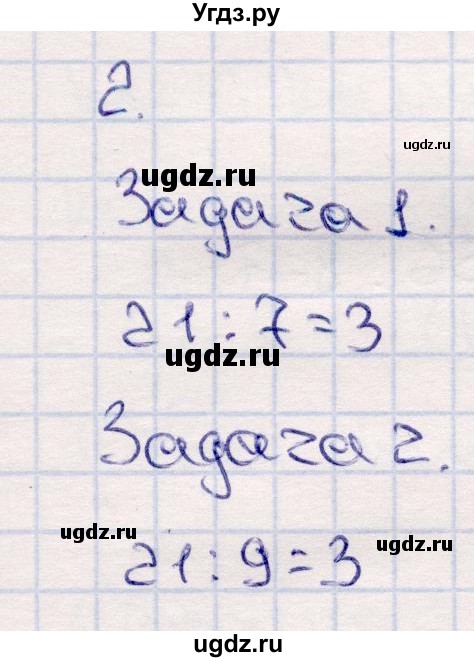 Угдз.ру
2.
ugdz.ru
ugdz.ru
Задача 1.
21 : 7 = 3
ugdz.ru
Задача 2.
ugdz.ru
ugdz.ru
21 : 9 = 3
ugdz.ru